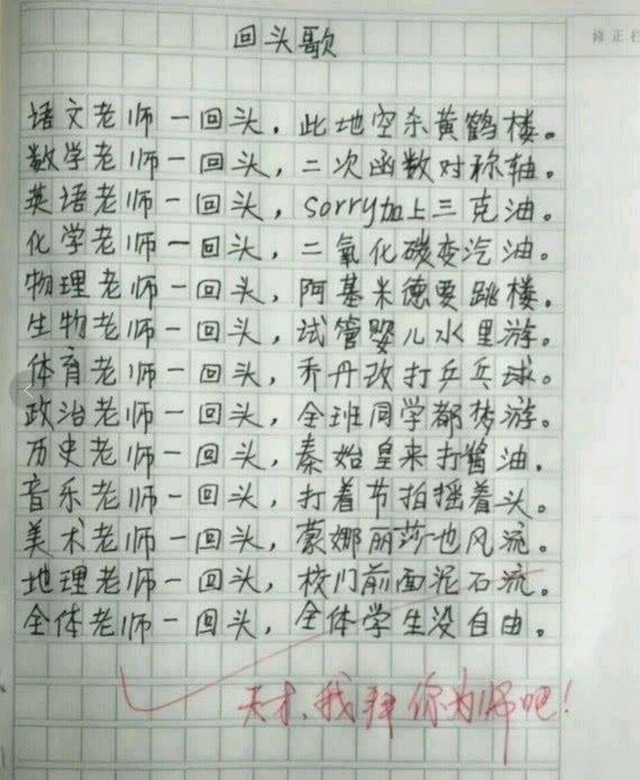 回头歌
修正栏
语文老师一回头，此地空余黄鹤楼。
数学老师一回头，二次函数对称轴。
英语老师一回头，sorry加上三克油。
化学老师一回头，二氧化碳变汽油。
物理老师一回头，阿基米德要跳楼。
生物老师一回头，试管婴儿水里游。
体育老师一回头，乔丹改打乒乓球。
政治老师一回头，全班同学都梦游。
历史老师一回头，秦始皇来打酱油。
音乐老师一回头，打着节拍摇着头。
美术老师一回头，蒙娜丽莎也风流。
地理老师一回头，校门前面泥石流。
全体老师一回头，全体学生没自由。
天才，我拜你为师吧！